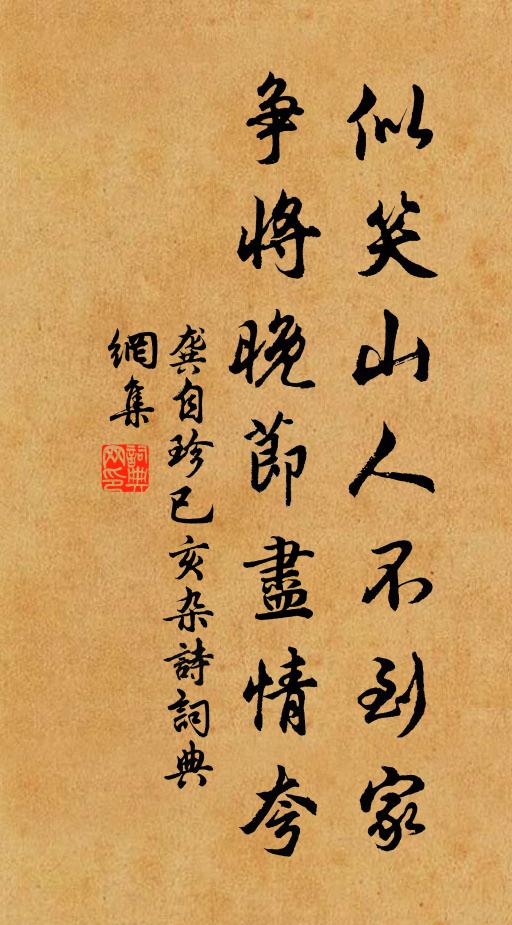 似笑山人不到家
争將晚節盡情夸
龔自珍己亥杂詩詞典
網集
詞典
网印